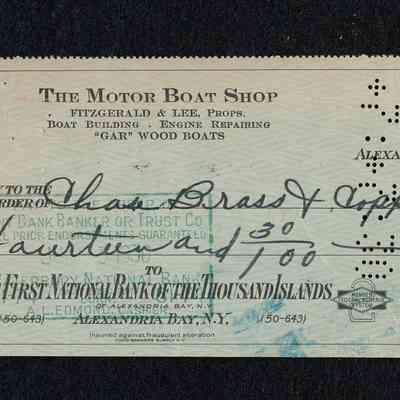 THE MOTOR BOAT SHOP
FITZGERALD & LEE, PROPS.
BOAT BUILDING - ENGINE REPAIRING
"GAR" WOOD BOATS
ALEXA
TO THE
RDER OF Chase Brass & Copp
BANK BANKER OR TRUST CO
PRIOR ENDORSEMENTS GUARANTEED
ourteen and 30/100
NATIONAL BANK
TO
FIRST NATIONAL BANK OF THE THOUSAND ISLANDS
OF ALEXANDRIA BAY, N.Y.
A. L. EDMOND, CASHIER
(50-643) ALEXANDRIA BAY, N.Y. (50-643)
Insured against fraudulent alteration